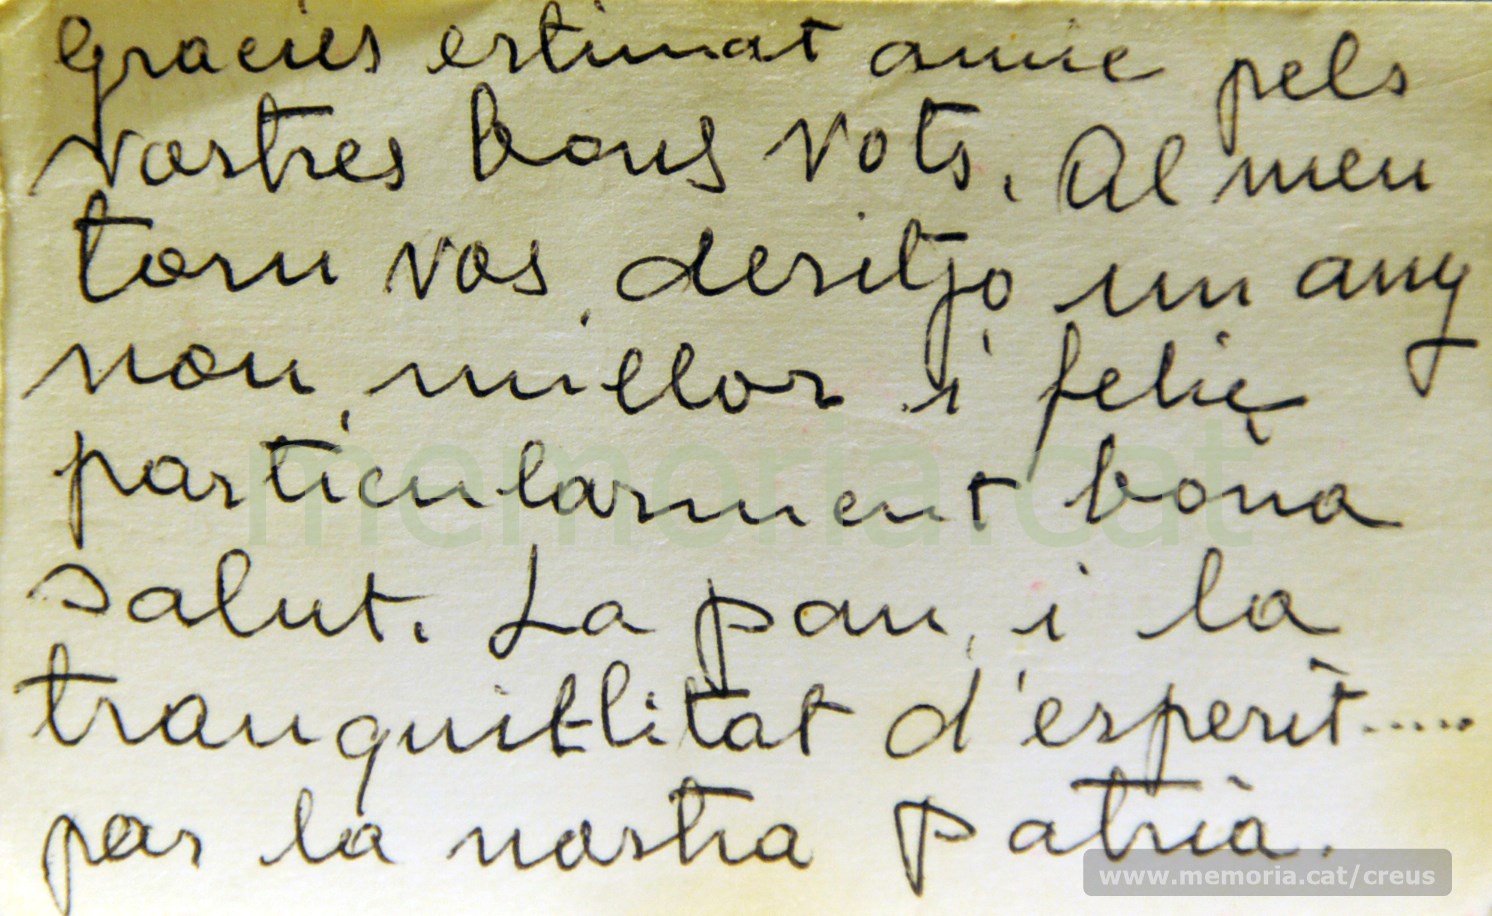 Gracies estimat amic pels
vostres bons vots. Al meu
torn vos desitjo un any
nou, millor i feliç
particularment bona
salut. La pau, i la
tranquil·litat d'esperit.....
per la nostra Patria.
memoria.cat
www.memoria.cat/creus